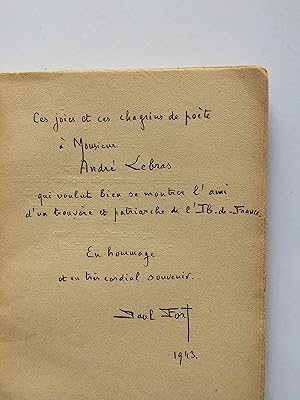 Ces joies et ces chagrins de poète
à Monsieur
André Lebras
qui voulut bien se montrer l'ami
d'un trouvère et patriarche de l'Ile-de-France.
En hommage
et en très cordial souvenir.
Paul Fort
1943.